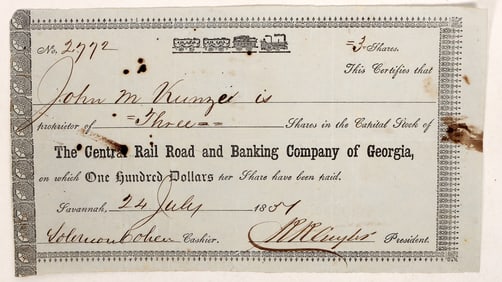 No. 2772 =3= Shares.
This Certifies that
John M Kunze is
proprietor of =Three== Shares in the Capital Stock of
The Central Rail Road and Banking Company of Georgia,
on which One Hundred Dollars per Share have been paid.
Savannah, 24 July 1857
Solomon Cohen Cashier. RR Cuyler President.